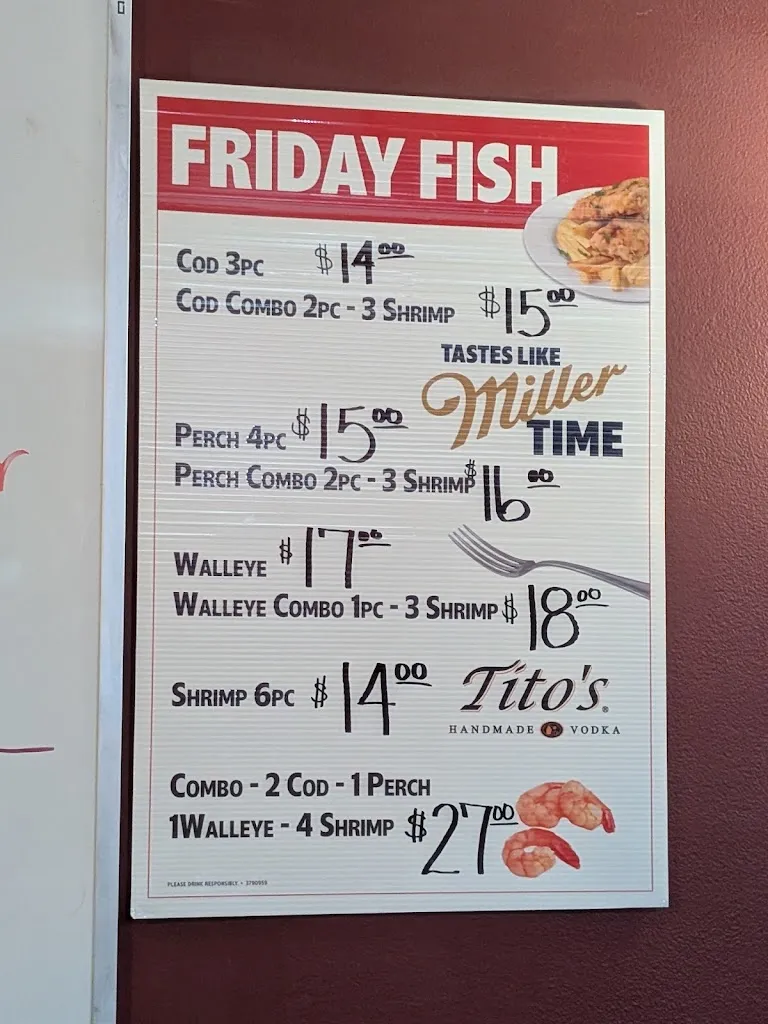 FRIDAY FISH
COD 3PC $14.00
COD COMBO 2PC - 3 SHRIMP $15.00
TASTES LIKE
Miller
TIME
PERCH 4PC $15.00
PERCH COMBO 2PC - 3 SHRIMP $16.00
WALLEYE $17.00
WALLEYE COMBO 1PC - 3 SHRIMP $18.00
SHRIMP 6PC $14.00
Tito's®
HANDMADE VODKA
COMBO - 2 COD - 1 PERCH
1WALLEYE - 4 SHRIMP $27.00
PLEASE DRINK RESPONSIBLY. •